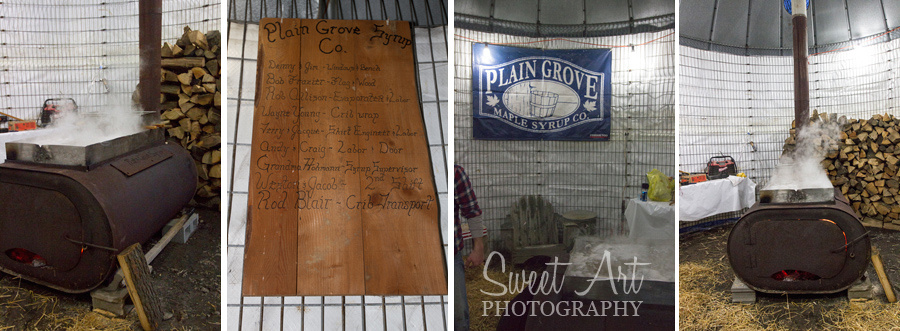 Plain Grove Syrup
Co.
Denny & Jan - Windows & Bench
Bob Frazier - Flag & Wood
Rob Allison - Evaporator & Labor
Wayne Young - Crib wrap
Jerry & Jaque - Shirt Engineers & Labor
Andy & Craig - Labor & Door
Grandma Syrup Supervisor
& Jacob
Rod Blair - Crib Transport
PLAIN GROVE
MAPLE SYRUP CO.
Sweet Art
PHOTOGRAPHY